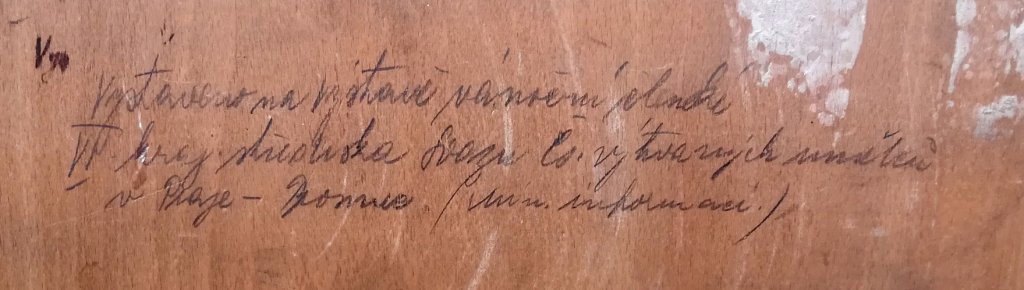 Vys
Vystaveno na Výstavě vánoční členské
VII kraj. střediska Svazu čs. výtvarných umělců
v Praze - (Min. informací.)